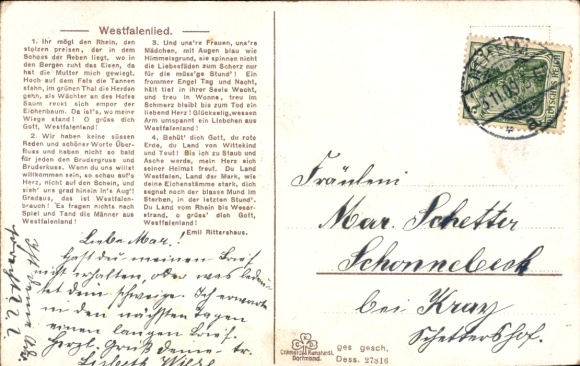 Westfalenlied.
1. Ihr mögt den Rhein, den
stolzen preisen, der in dem
Schoss der Reben liegt, wo in
den Bergen ruht das Eisen, da
hat die Mutter mich gewiegt.
Hoch auf dem Fels die Tannen
stehn, im grünen Thal die Herden
gehn, als Wächter an des Hofes
Saum reckt sich empor der
Eichenbaum. Da ist's, wo meine
Wiege stand! O grüss dich
Gott, Westfalenland!
2. Wir haben keine süssen
Reden und schöner Worte Über-
fluss und haben nicht so bald
für jeden den Brudergruss und
Bruderkuss. Wenn du uns willst
willkommen sein, so schau auf's
Herz, nicht auf den Schein, und
sieh' uns grad hinein in's Aug'!
Gradaus, das ist Westfalen-
brauch! Es fragen nichts nach
Spiel und Tand die Männer aus
Westfalenland!
3. Und uns're Frauen, uns're
Mädchen, mit Augen blau wie
Himmelsgrund, sie spinnen nicht
die Liebesfäden zum Scherz nur
für die müss'ge Stund'! Ein
frommer Engel Tag und Nacht,
hält tief in ihrer Seele Wacht,
und treu in Wonne, treu im
Schmerz bleibt bis zum Tod ein
liebend Herz! Glückselig, wessen
Arm umspannt ein Liebchen aus
Westfalenland!
4. Behüt' dich Gott, du rote
Erde, du Land von Wittekind
und Teut! Bis ich zu Staub und
Asche werde, mein Herz sich
seiner Heimat freut. Du Land
Westfalen, Land der Mark, wie
deine Eichenstämme stark, dich
segnet noch der blasse Mund im
Sterben, in der letzten Stund'.
Du Land vom Rhein bis Weser-
strand, o grüss' dich Gott,
Westfalenland!
Emil Rittershaus.
Liebe Mar.!
Hast du meinen Brief
nicht erhalten, oder was bedeu-
tet dein schweigen. Ich erwarte
in den nächsten Tagen
einen langen Brief.
Herzl. Gruß deine
Lisbeth
Fräulein
Mar. Schetter
Schonnebeck
bei Kray
Schettershof.
DEUTSCHES REICH
Dortmund.
ges gesch.
Dess. 27816